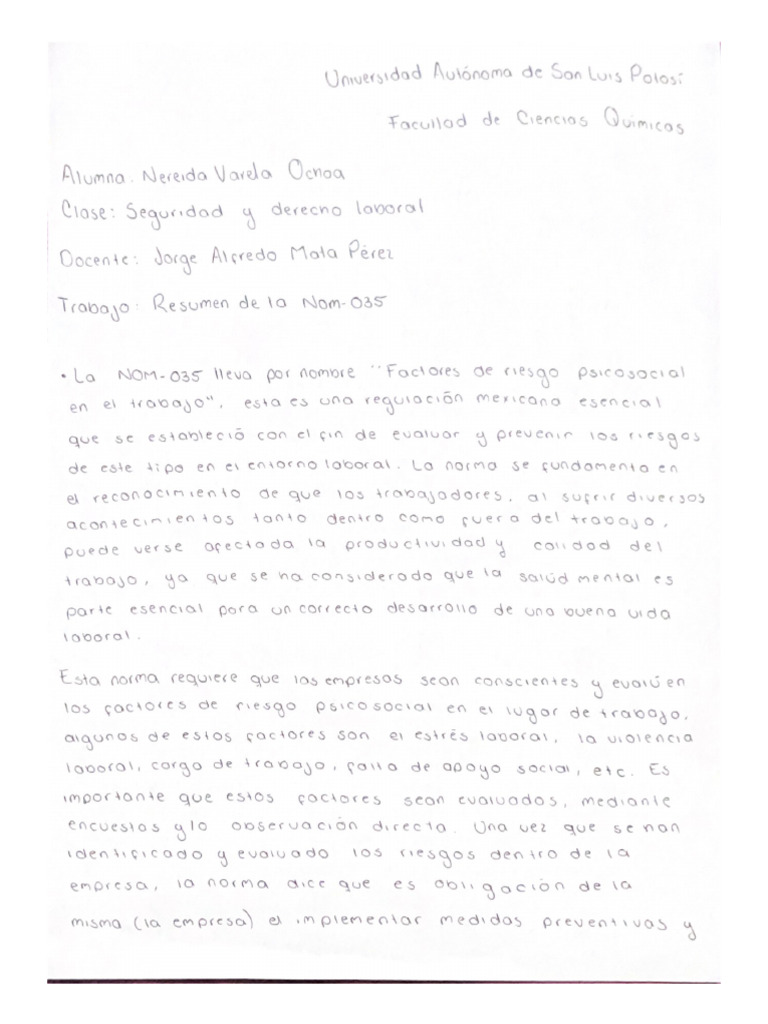 Universidad Autónoma de San Luis Potosí
Facultad de Ciencias Químicas
Alumna: Nereida Varela Ochoa
Clase: Seguridad y derecho laboral
Docente: Jorge Alfredo Mata Pérez
Trabajo: Resumen de la Nom-035
• La NOM-035 lleva por nombre "Factores de riesgo psicosocial
en el trabajo", esta es una regulación mexicana esencial
que se estableció con el fin de evaluar y prevenir los riesgos
de este tipo en el entorno laboral. La norma se fundamenta en
el reconocimiento de que los trabajadores, al sufrir diversos
acontecimientos tanto dentro como fuera del trabajo,
puede verse afectada la productividad y calidad del
trabajo, ya que se ha considerado que la salud mental es
parte esencial para un correcto desarrollo de una buena vida
laboral.
Esta norma requiere que las empresas sean conscientes y evalúen
los factores de riesgo psicosocial en el lugar de trabajo,
algunos de estos factores son el estrés laboral, la violencia
laboral, carga de trabajo, falta de apoyo social, etc. Es
importante que estos factores sean evaluados, mediante
encuestas y/o observación directa. Una vez que se han
identificado y evaluado los riesgos dentro de la
empresa, la norma dice que es obligación de la
misma (la empresa) el implementar medidas preventivas y